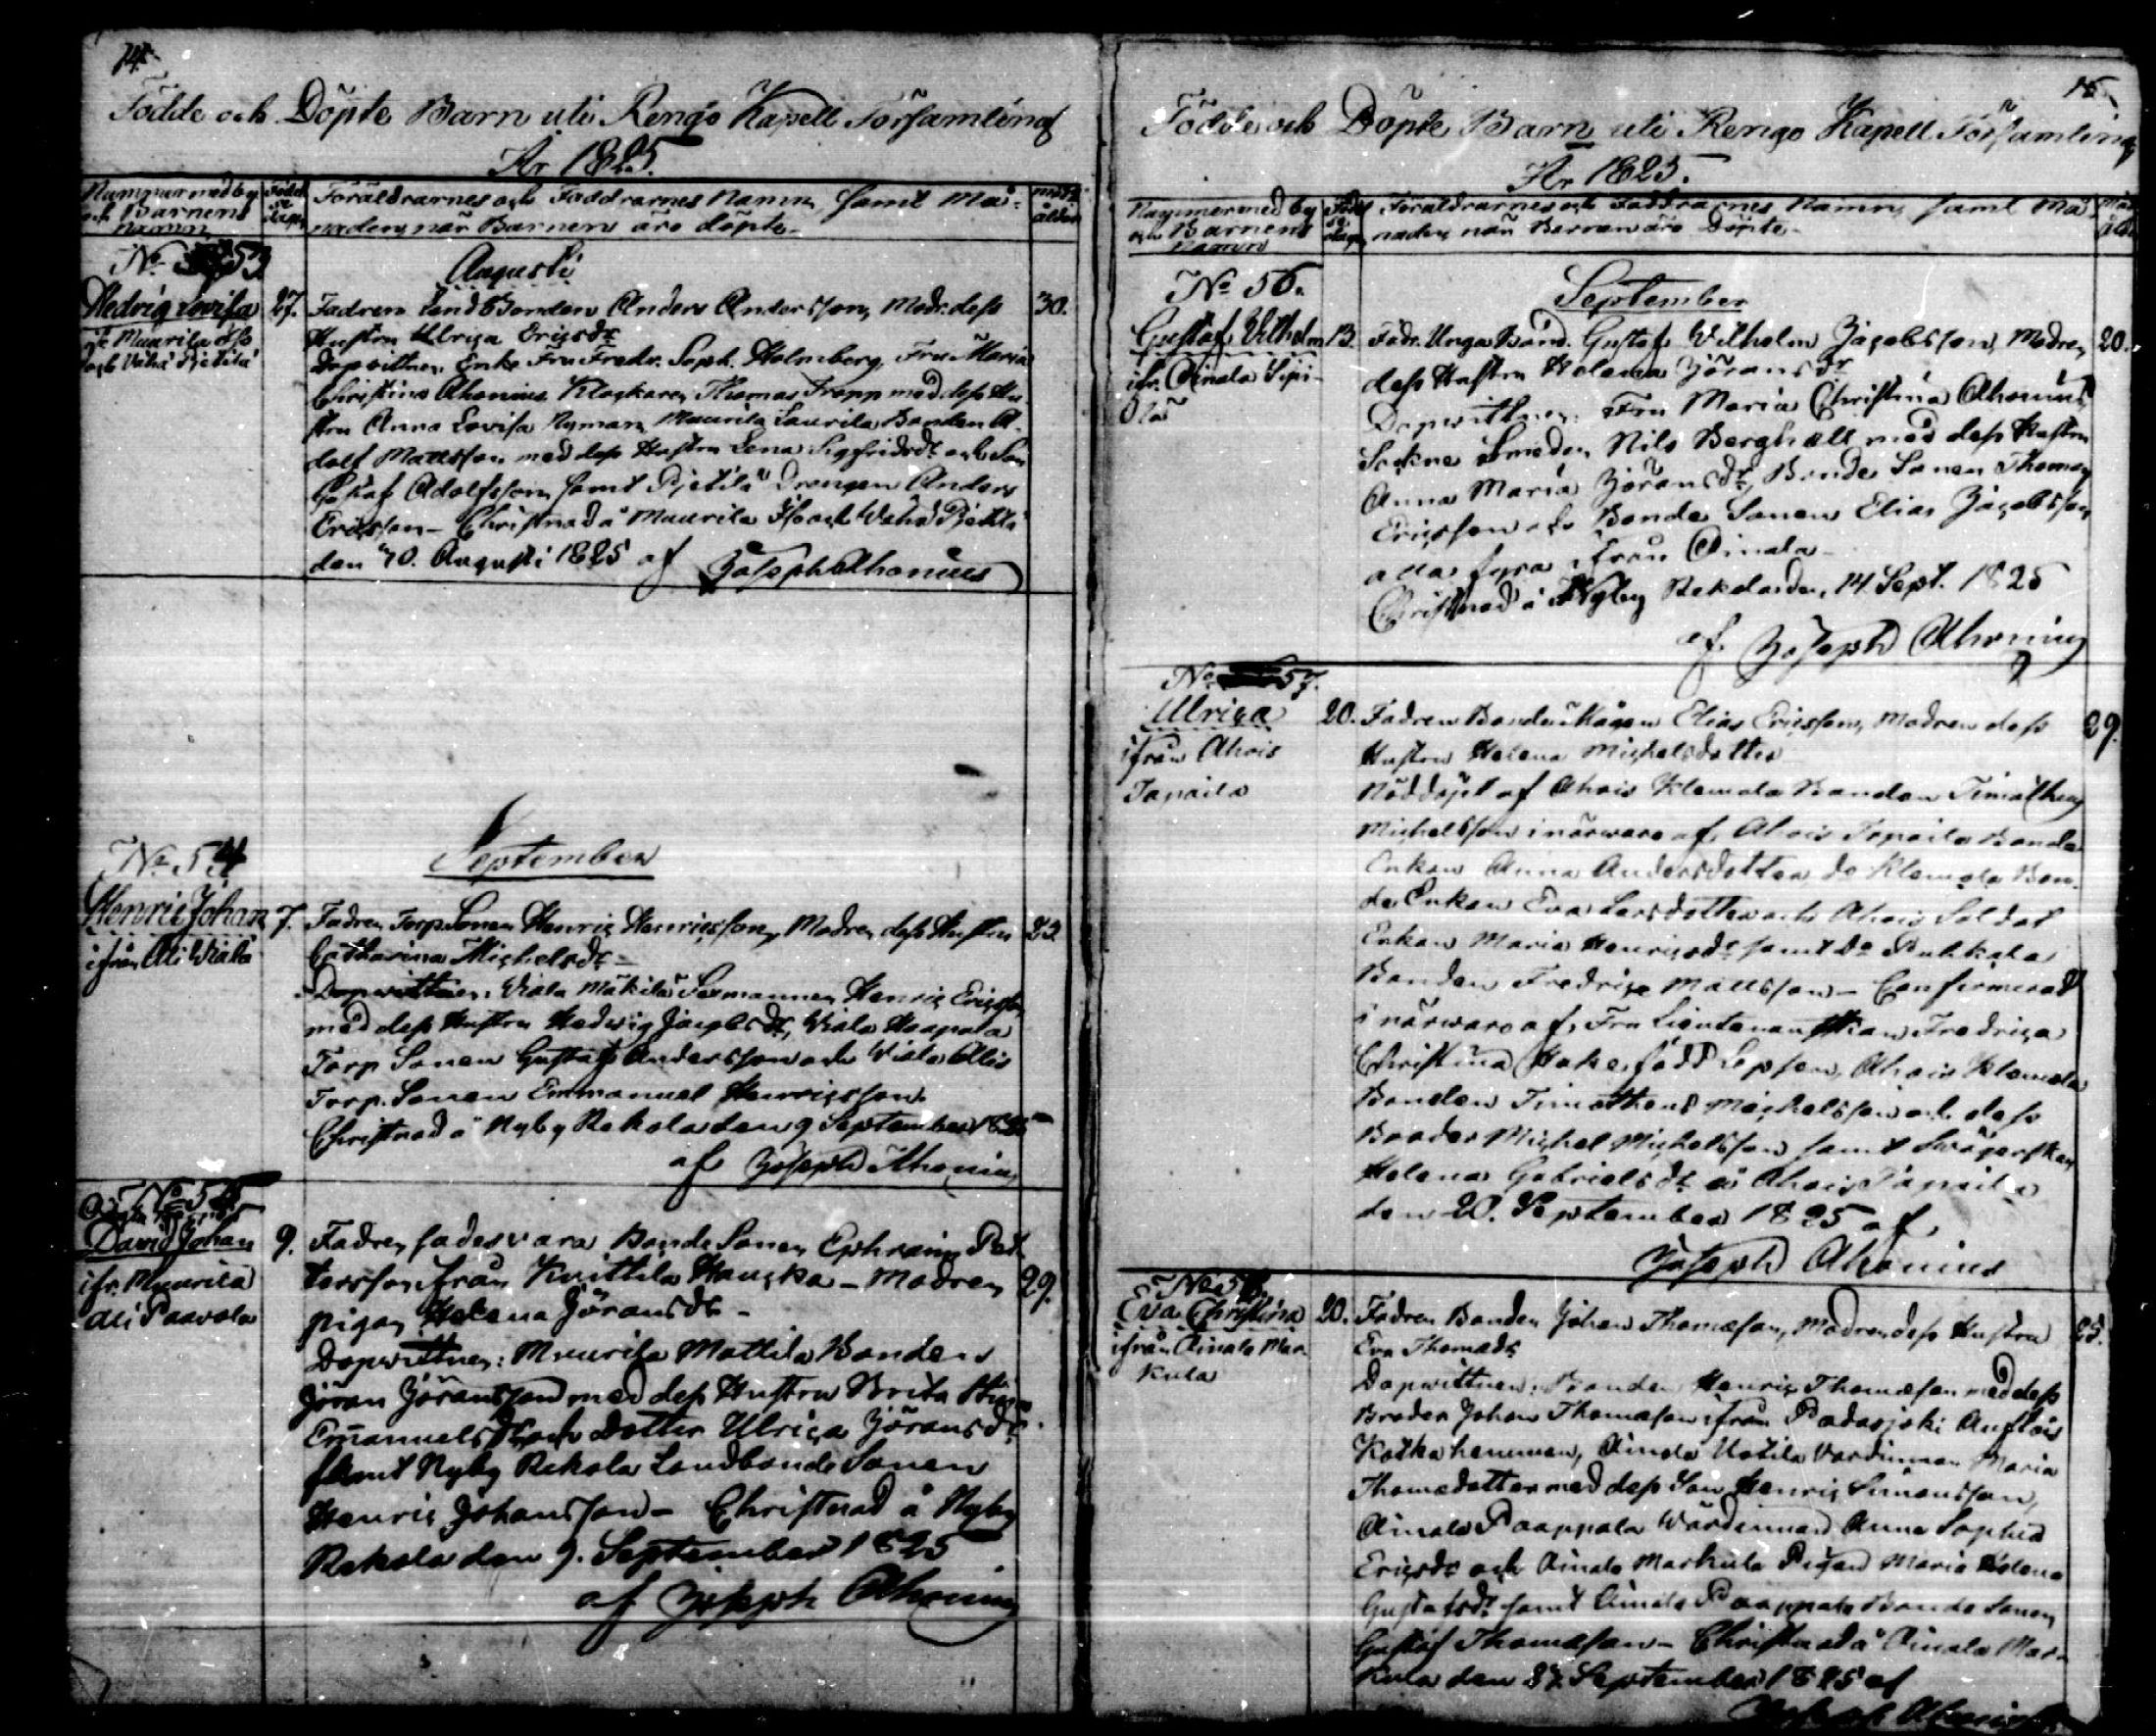 14.
Födde och Döpte Barn uti Rengo Kapell Församling
År 1825.
Nummer med by och Barnens Namn
Födelse dagen
Föräldrarnes och Faddrarnes Namn, samt Må-
naden, när Barnen äro döpte
modr. ålder
No 53
Augusti
Hedvig Lovisa
27.
Fadren LandBonden Anders Andersson, Modr. dess
30.
Hustru Ulrica Ericsdr
Muurila Iso
och Vähä Pietilä
Dopvittnen. Enke Fru Fredr. Soph. Holmberg, Fru Maria
Christina Ahonius Klockaren Thomas Tropp med dess Hu-
stru Anna Lovisa Nyman, Muurila Laurila Bonden A-
dolf Mattsson med dess Hustru Lena Sigfridsdr och Son
Gustaf Adolfsson, samt Pietilä Drengen Anders
Ericsson – Christnad å Muurila Iso och Wähä Pietilä
den 30. Augusti 1825 af Joseph Ahonius
No 54
September
Henric Johan
7.
Fadren Torp. Sonen Henric Henricsson, Modren dess Hustru
23.
ifrån Ali Wiala
Catharina Michelsdr –
Dopvittnen. Wiala Mäkilä Sexmannen Henric Ericsson
med dess Hustru Hedvig Jacobsdr, Wiala Haapala
Torp Sonen Gustaf Andersson och Wiala Ollis
Torp. Sonen Emmanuel Henricsson.
Christnad å Nyby Rekola den 9 September 1825
af Joseph Ahonius
No 55
David Johan
9.
Fadren sades vara Bonde Sonen Ephraim Pet-
ifr. Muurila
tersson från Kuittila Hauska – Modren
29.
Ali Paavola
pigan Helena Göransdr –
Dopvittnen: Muurila Mattila Bonden
Jöran Jöransson med dess Hustru Brita
Emanuelsdr och dotter Ulrica Jöransdr
samt Nyby Rekola Landbonde Sonen
Henric Johansson – Christnad å Nyby
Rekola den 9. September 1825
af Joseph Ahonius
15.
Födde och Döpte Barn uti Rengo Kapell Församling
År 1825.
Nummer med by och Barnens Namn
Födelse dagen
Föräldrarnes och Faddrarnes Namn, samt Må-
naden, när Barnen äro Döpte –
No 56.
September
Gustaf Vilhelm
13.
Fadr. Unga Bond. Gustaf Wilhelm Jacobsson, Modren
20.
ifr. Oinala Sipi-
dess Hustru Helena Jöransdr
Ola
Dopvittnen: Fru Maria Christina Ahonius
Sockne Smeden Nils Berghäll med dess Hustru
Anna Maria Jöransdr, Bonde Sonen Thomas
Ericsson och Bonde Sonen Elias Jacobsson
alla fyra från Oinala –
Christnad å Nyby Rekola den 14 Sept. 1825
af. Joseph Ahonius
No 57.
Ulrica
20.
Fadren Bonde Mågen Elias Ericsson, Modren dess
29.
ifrån Ahois
Hustru Helena Michelsdotter
Tapaila
Nöddöpt af Ahois Klemola Bonden Timotheus
Michelsson i närwaro af, Ahois Tapaila Bonde
Enkan Anna Andersdotter do Klemola Bon-
de Enkan Eva Larsdotter och Ahois Soldat
Enkan Maria Henricsdr samt do Puhkala
Bonden Fredric Mattsson – Confirmerad
i närwaro af, Fru Lieutenantskan Fredrica
Christina Hake, född Jepson, Ahois Klemola
Bonden Timotheus Michelsson och dess
Broder Michel Michelsson samt Swägerskan
Helena Gabrielsdr å Ahois Tapaila
den 20. September 1825 af,
Joseph Ahonius
No 58.
Eva Christina
20.
Fadren Bonden Johan Thomasson, Modren dess Hustru
ifrån Oinala Mar-
Eva Thomasdr
kula
Dopvittnen: Bonden Henric Thomasson med dess
Broder Johan Thomasson ifrån Padasjoki
hemman, Oinala Uotila Värdinnan Maria
Thomasdotter med dess Son Henric Simonsson,
Oinala Paappala Wärdinnan Anna Sophia
Ericsdr och Oinala Markula Pigan Maria Helena
Gustafsdr samt Oinala Paappala Bonde Sonen
Gustaf Thomasson – Christnad å Oinala Mar-
kula den 27. September 1825 af
Joseph Ahonius